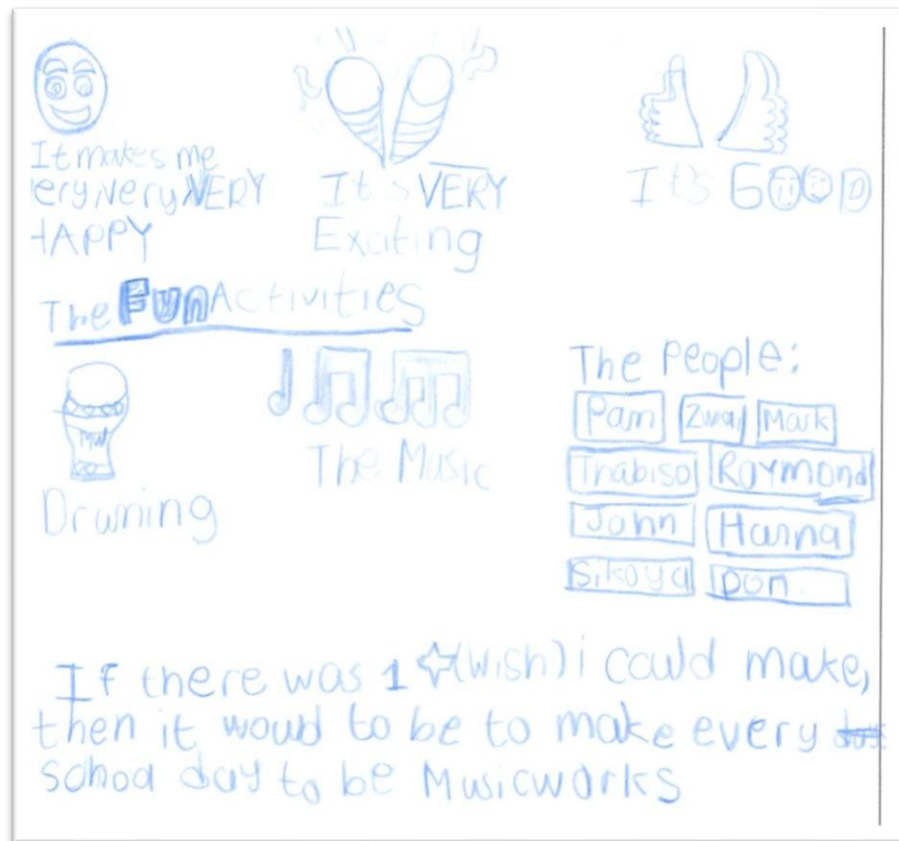 It makes me
very very VERY
HAPPY
It's VERY
Exciting
It's GOOD
The Fun Activities
MW
Druming
The Music
The People:
Pam Zwai Mark
Thabiso Raymond
John Hanna
Sikoya Don.
If there was 1 (wish) i could make,
then it woud to be to make every
school day to be Musicworks